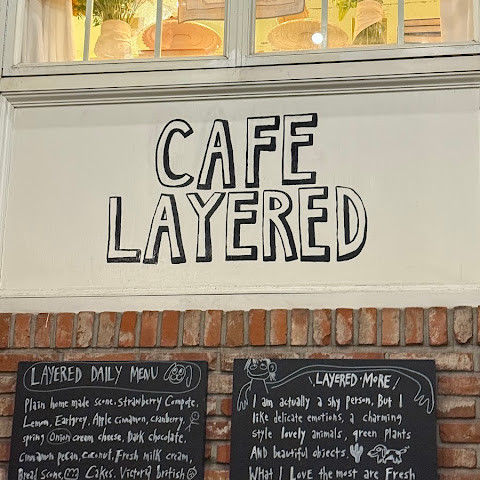 CAFE
LAYERED
LAYERED DAILY MENU
Plain home made scone, strawberry Compote,
Lemon, Earlgrey, Apple cinnamon, cranberry,
spring Onion cream cheese, Dark chocolate,
Cinnamon pecan, coconut, Fresh milk cream,
Bread Scone, Cakes. Victoria British
LAYERED · MORE!
I am actually a shy person, But I
like delicate emotions, a charming
style lovely animals, green plants
AND beautiful objects.
What I Love the most are Fresh